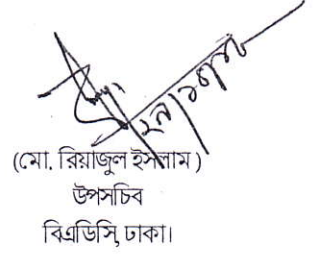 (মো. রিয়াজুল ইসলাম)
উপসচিব
বিএডিসি, ঢাকা।